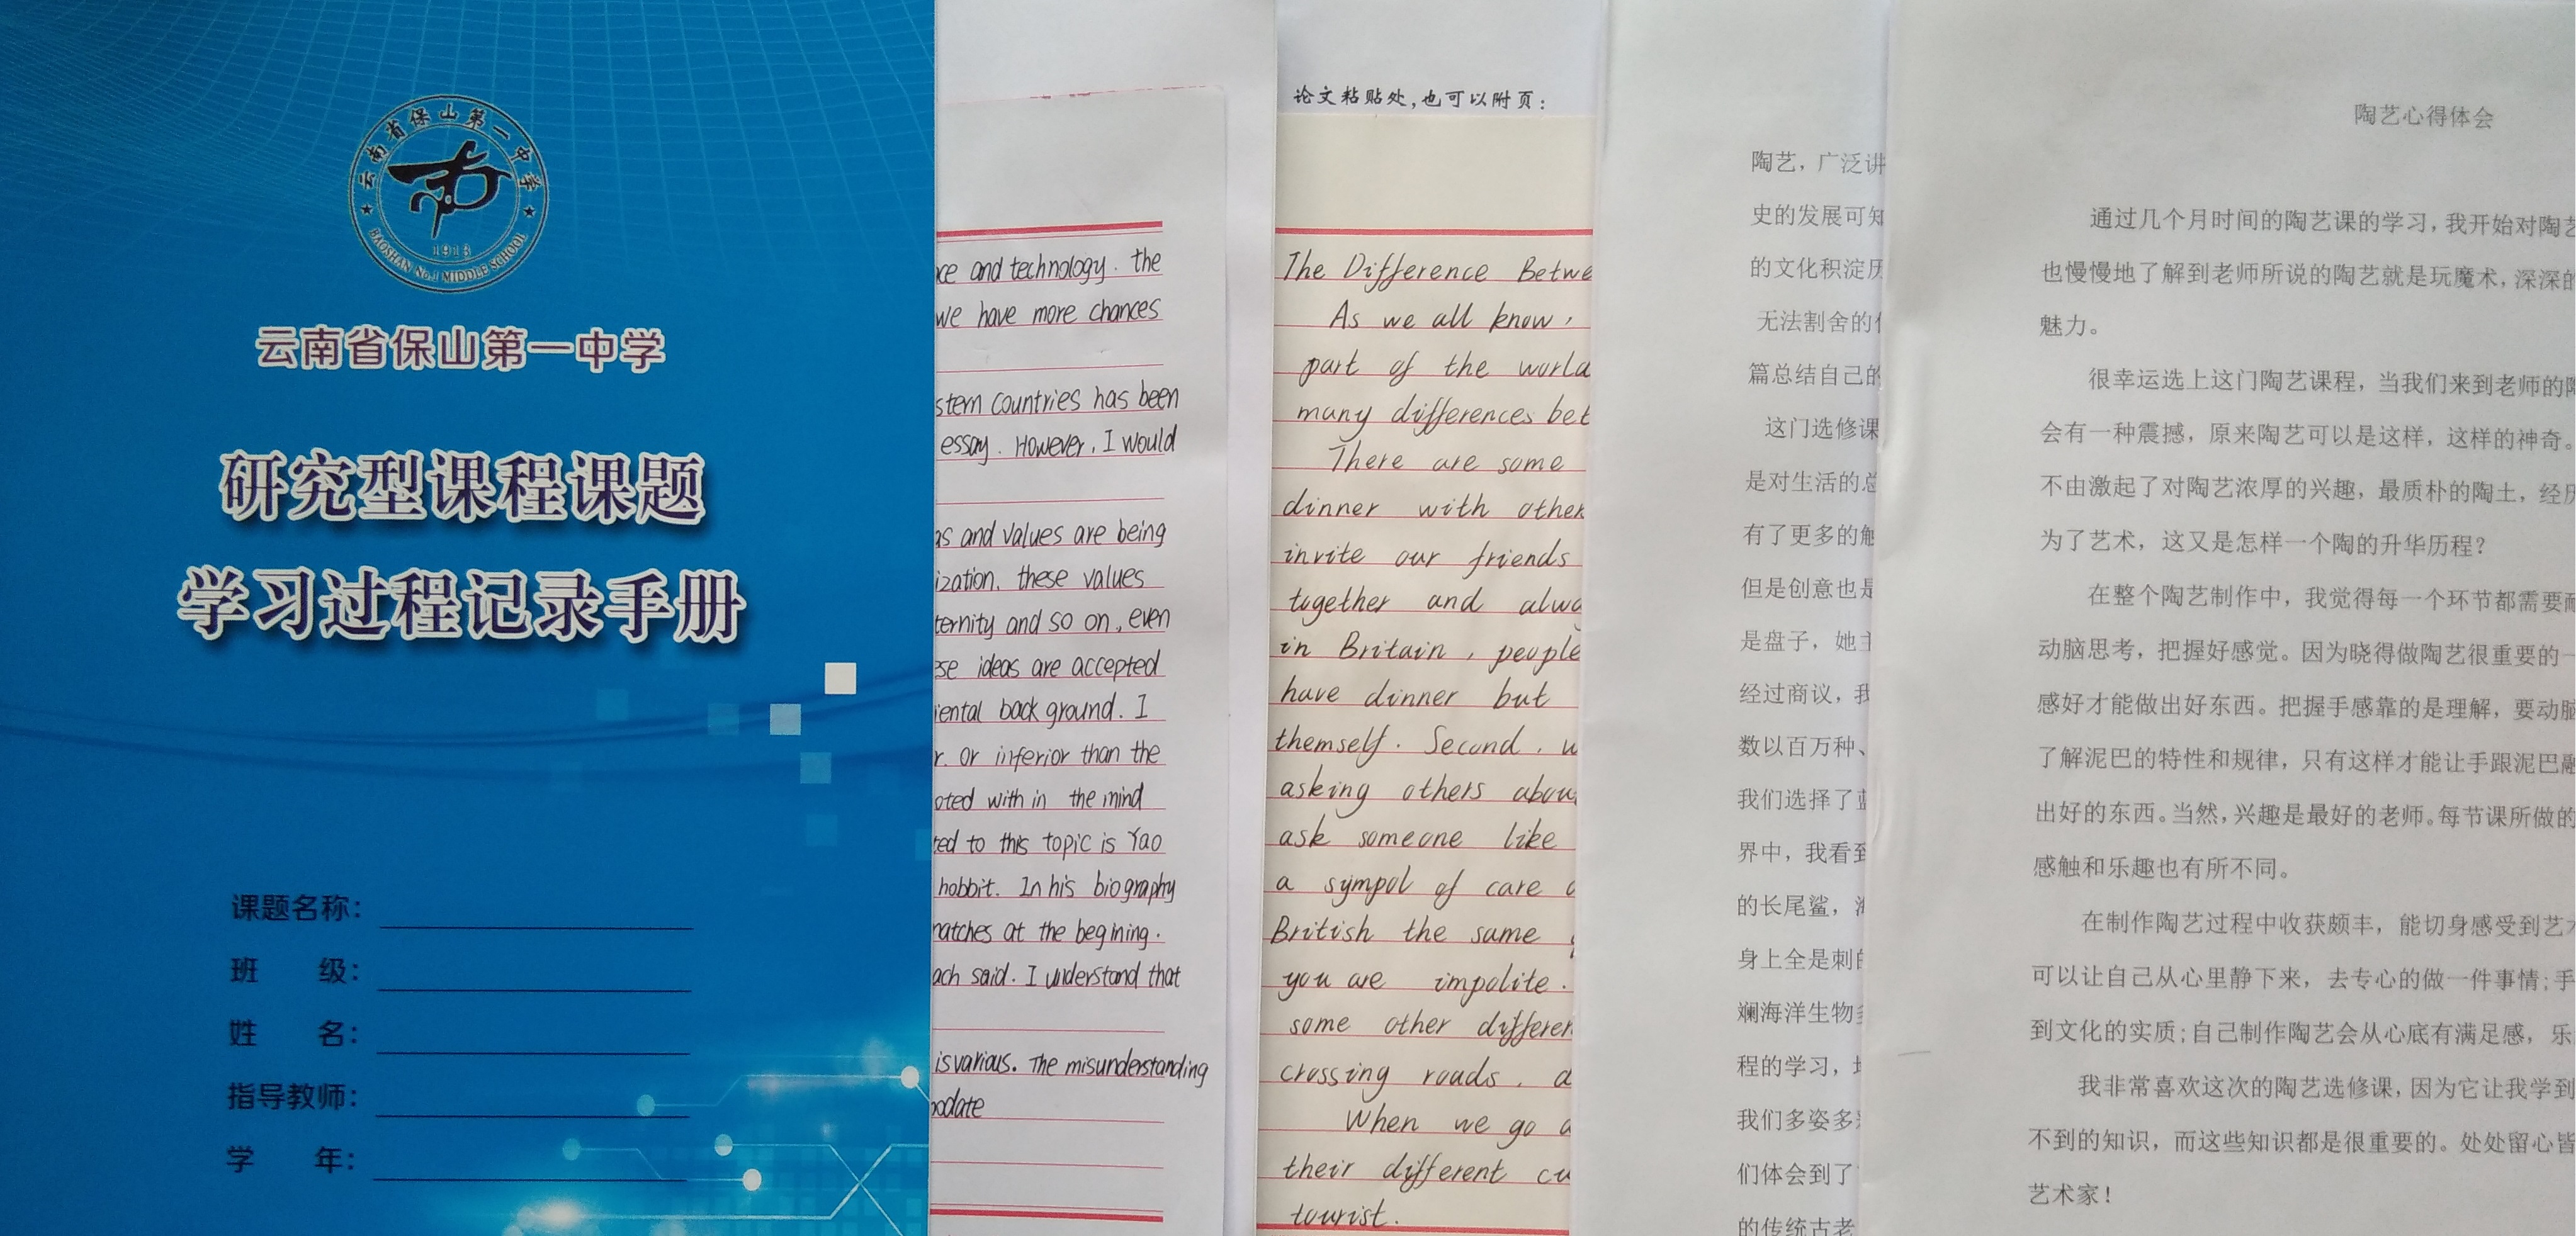 云南省保山第一中学
1913
BAOSHAN No.1 MIDDLE SCHOOL
云南省保山第一中学
研究型课程课题
学习过程记录手册
课题名称：
班 级：
姓 名：
指导教师：
学 年：
and technology. the
we have more chances
countries has been
essay. However, I would
and values are being
these values
and so on, even
ideas are accepted
back ground. I
or inferior than the
with in the mind
to this topic is Yao
hobbit. In his biography
at the begining.
said. I understand that
is various. The misunderstanding
论文粘贴处，也可以附页：
The Difference Betwe
As we all know,
part of the world
many differences bet
There are some
dinner with other
invite our friends
together and alwa
in Britain, people
have dinner but
themself. Second, w
asking others abou
ask someone like
a sympol of care
British the same
you are impolite.
some other differen
crossing roads, a
When we go a
their different cu
tourist.
陶艺，广泛讲
史的发展可知
的文化积淀历
无法割舍的
篇总结自己的
这门选修课
是对生活的总
有了更多的触
但是创意也是
是盘子，她主
经过商议，我
数以百万种、
我们选择了蓝
界中，我看到
的长尾鲨，海
身上全是刺的
斓海洋生物
程的学习，
我们多姿多
们体会到了
的传统古老
陶艺心得体会
通过几个月时间的陶艺课的学习，我开始对陶艺
也慢慢地了解到老师所说的陶艺就是玩魔术，深深的
魅力。
很幸运选上这门陶艺课程，当我们来到老师的陶
会有一种震撼，原来陶艺可以是这样，这样的神奇。
不由激起了对陶艺浓厚的兴趣，最质朴的陶土，经历
为了艺术，这又是怎样一个陶的升华历程？
在整个陶艺制作中，我觉得每一个环节都需要耐
动脑思考，把握好感觉。因为晓得做陶艺很重要的一
感好才能做出好东西。把握手感靠的是理解，要动脑
了解泥巴的特性和规律，只有这样才能让手跟泥巴融
出好的东西。当然，兴趣是最好的老师。每节课所做的
感触和乐趣也有所不同。
在制作陶艺过程中收获颇丰，能切身感受到艺术
可以让自己从心里静下来，去专心的做一件事情；手
到文化的实质；自己制作陶艺会从心底有满足感，乐
我非常喜欢这次的陶艺选修课，因为它让我学到
不到的知识，而这些知识都是很重要的。处处留心皆
艺术家！